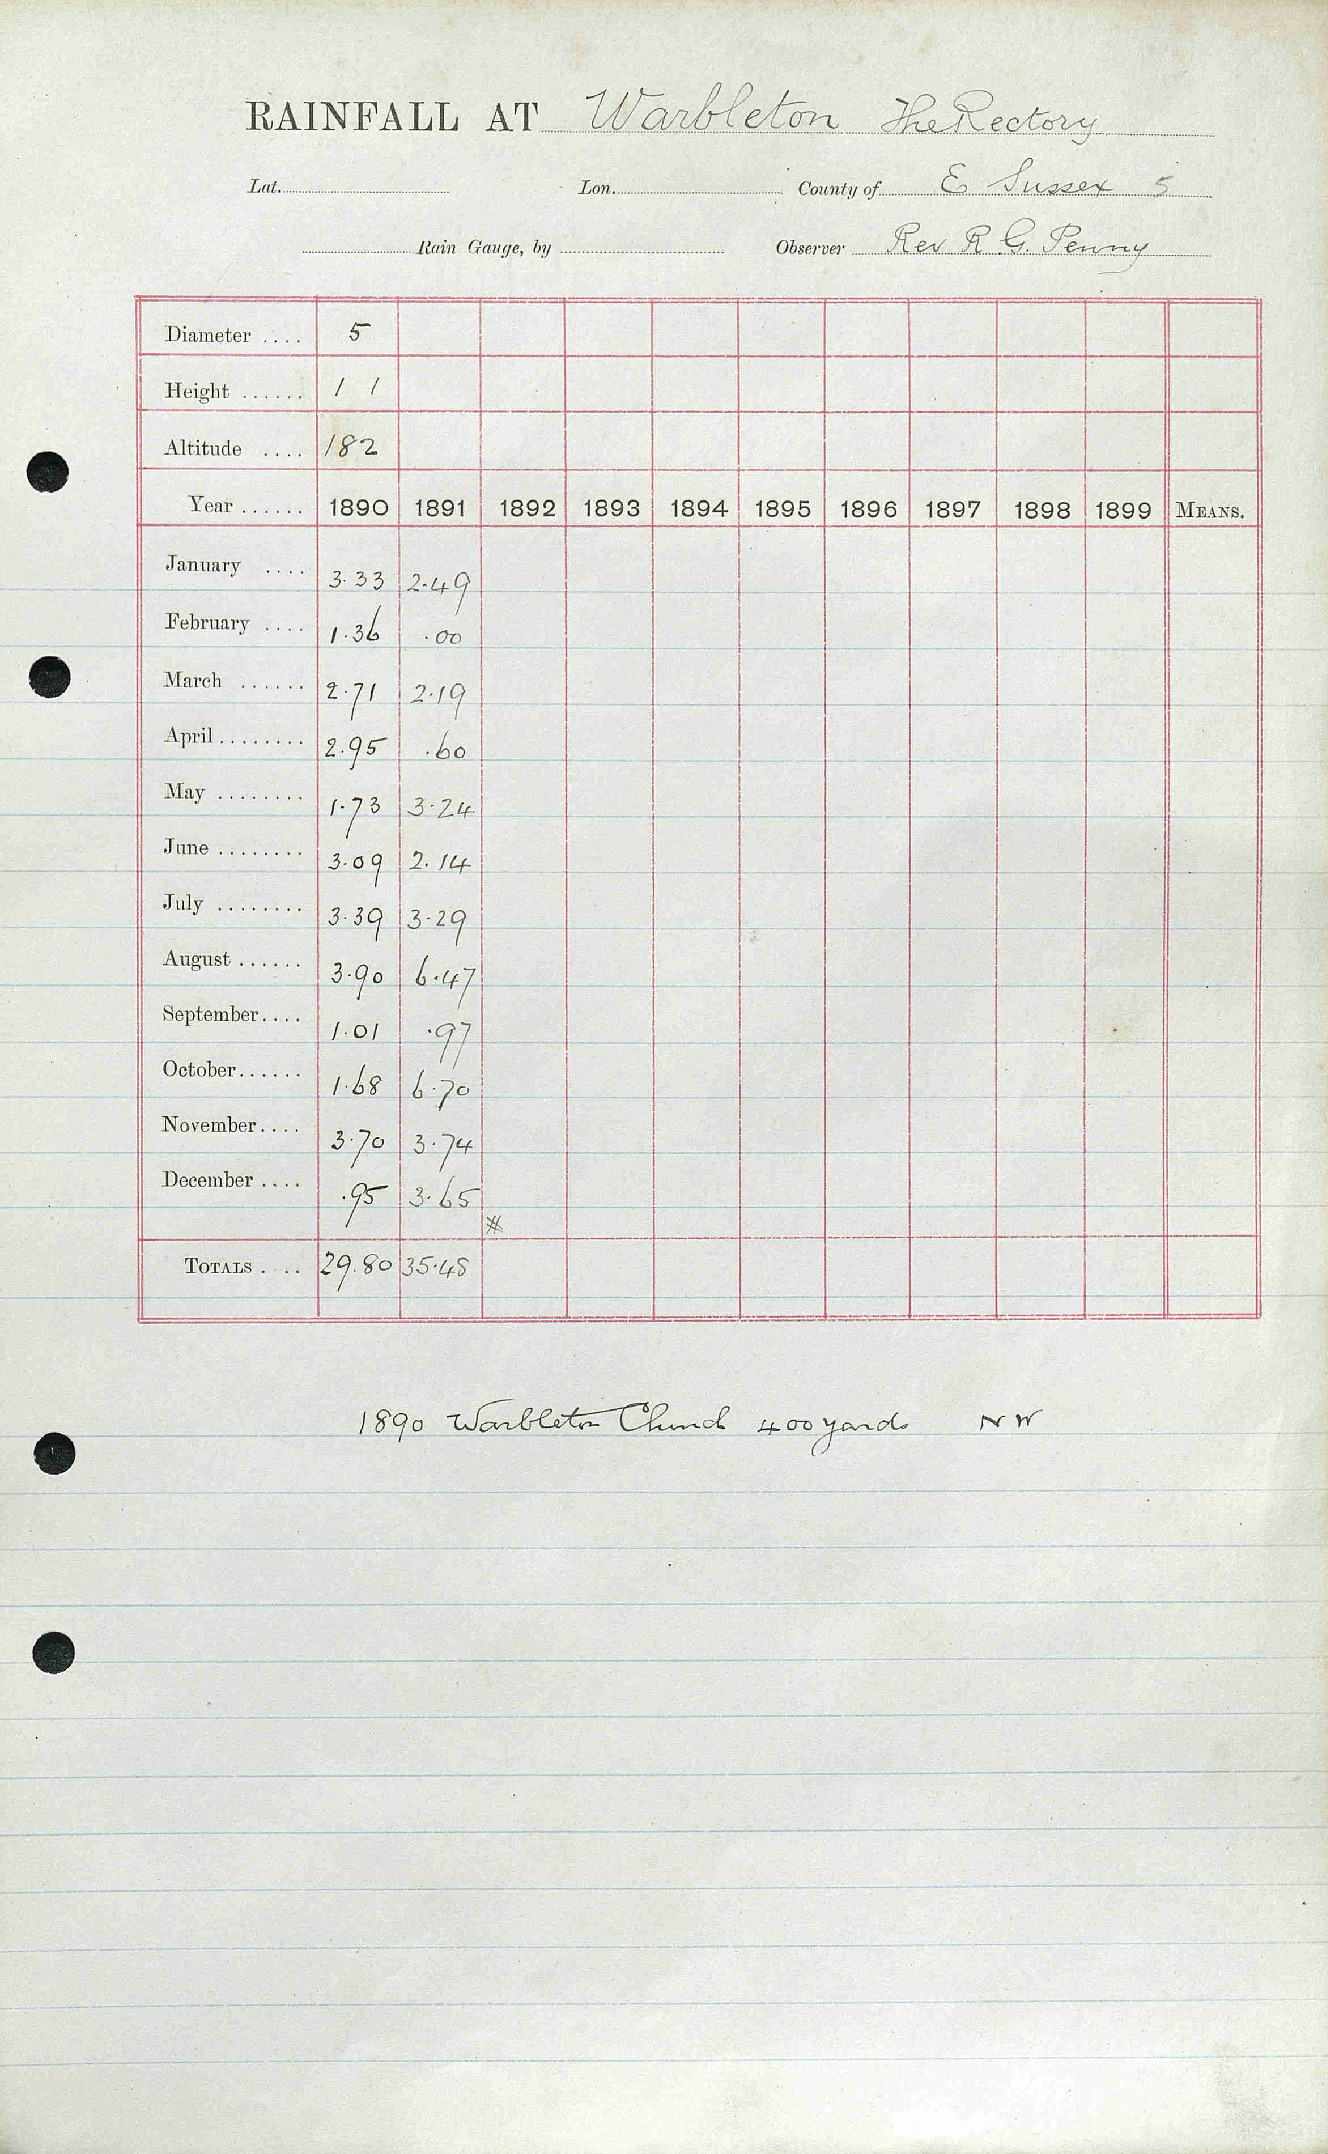 RAINFALL AT Warbleton The Rectory
Lat. Lon. County of E Sussex 5
Rain Gauge, by Observer Rev R. G. Penny
Diameter .... 5
Height ...... 1 1
Altitude .... 182
Year ...... 1890 1891 1892 1893 1894 1895 1896 1897 1898 1899 MEANS.
January .... 3.33 2.49
February .... 1.36 .00
March ...... 2.71 2.19
April ........ 2.95 .60
May ........ 1.73 3.24
June ........ 3.09 2.14
July ........ 3.39 3.29
August ...... 3.90 6.47
September .... 1.01 .97
October ...... 1.68 6.70
November .... 3.70 3.74
December .... .95 3.65
TOTALS .... 29.80 35.48
1890 Warbleton Church 400 yards NW